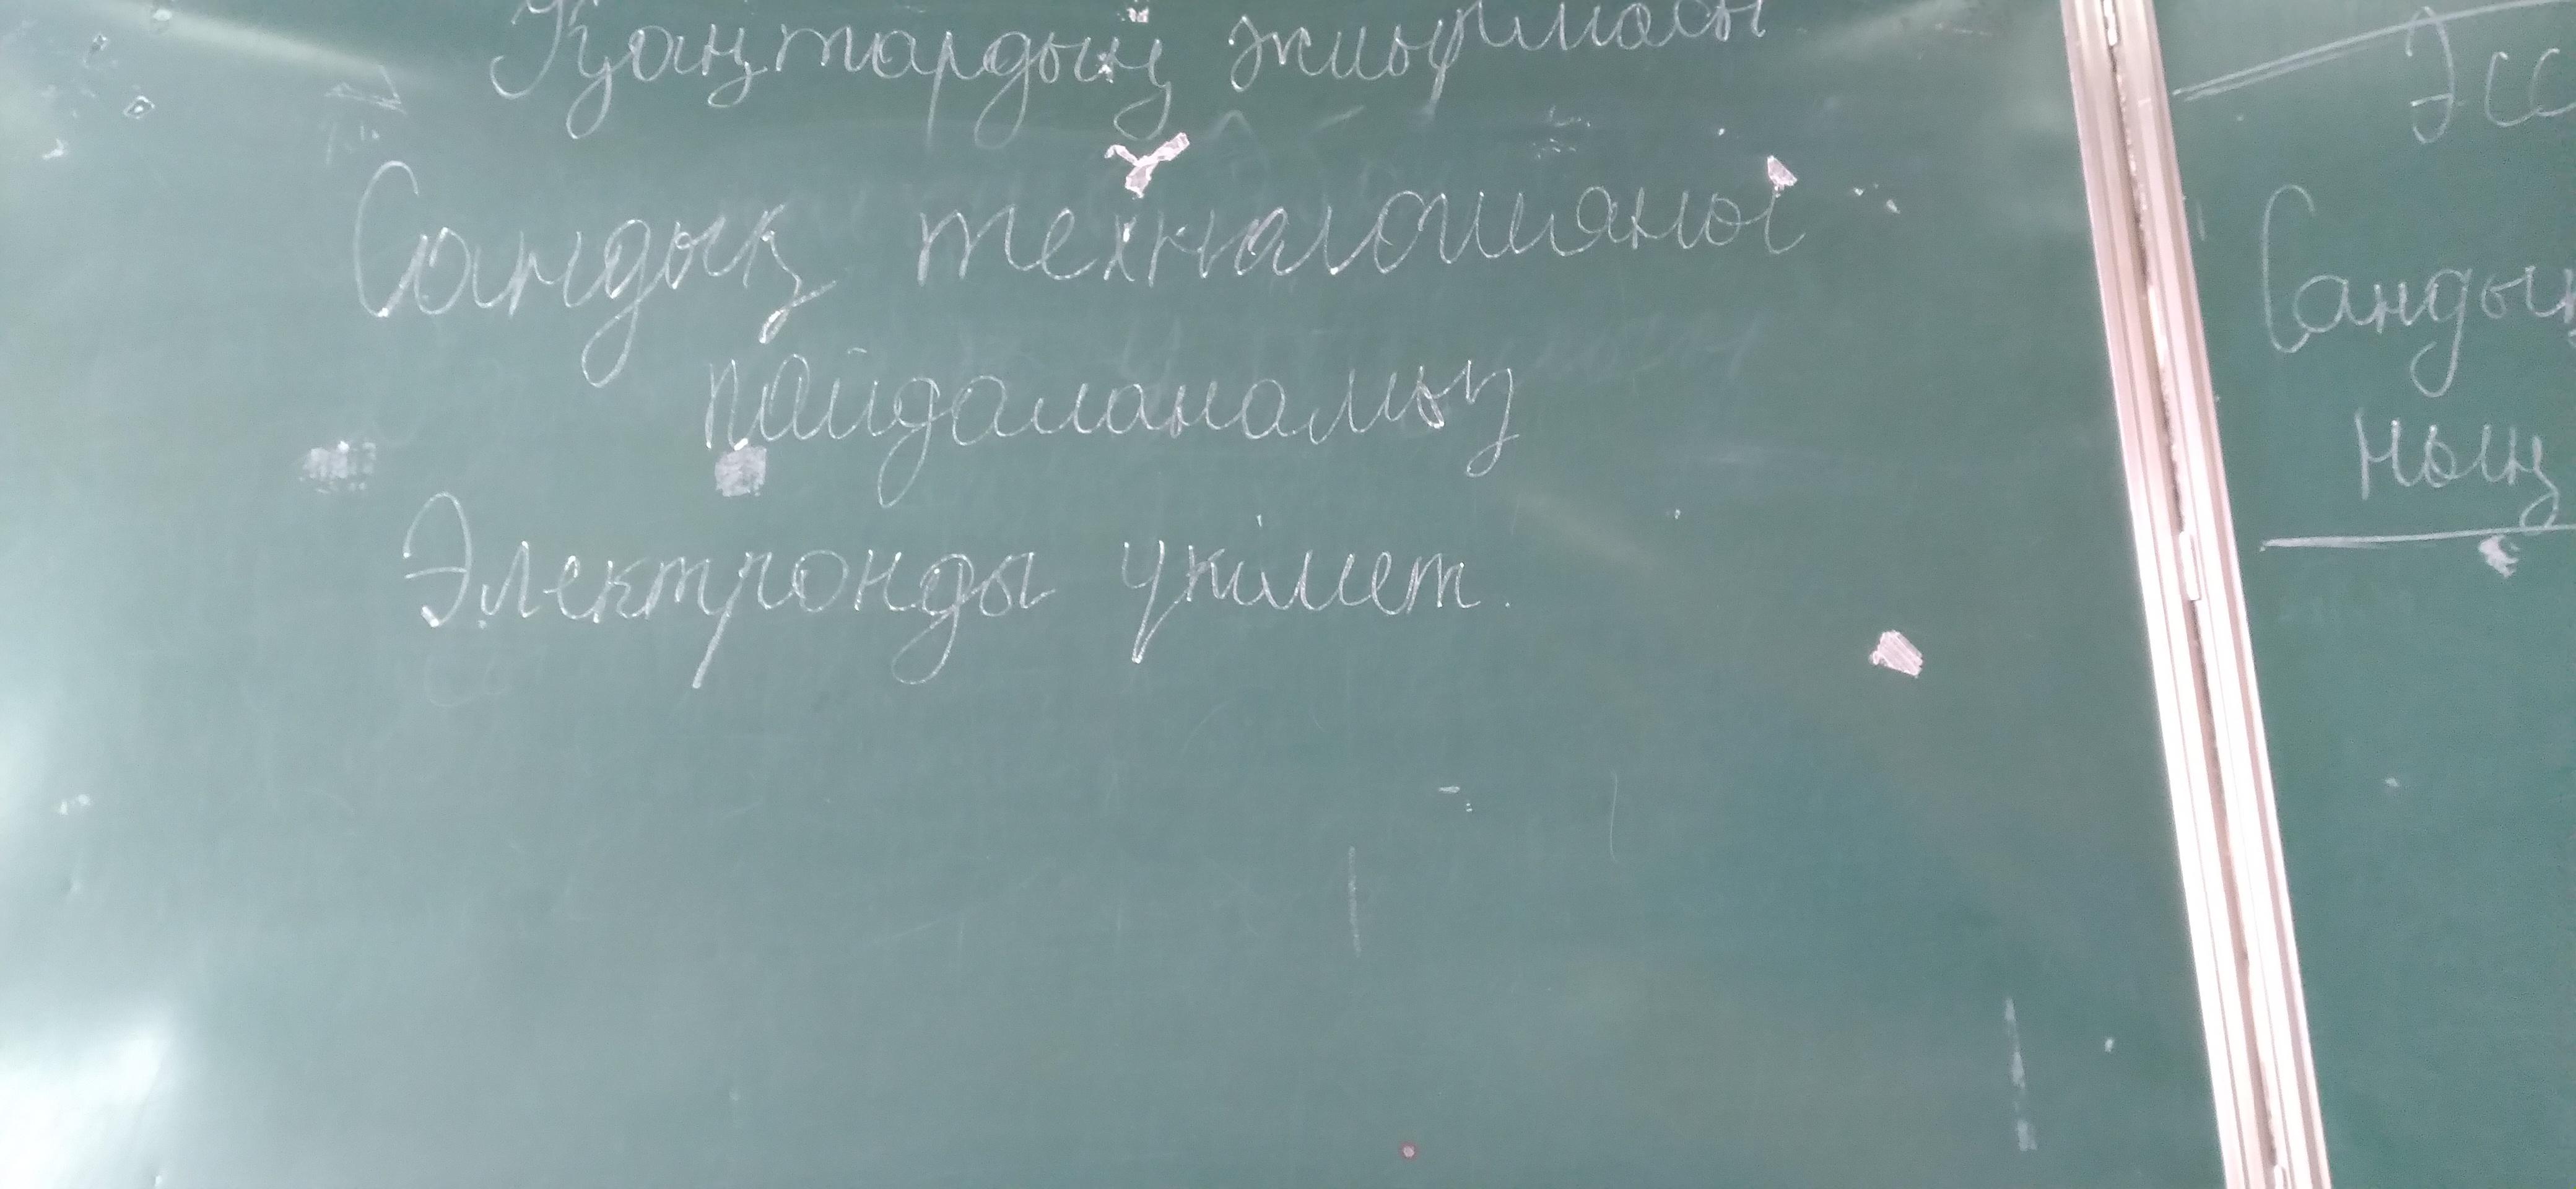 Қаңтардың жиырмасы
Сандық техналогияны
пайдаланамыз
Электронды үкімет.
Эсс
Сандық
ның